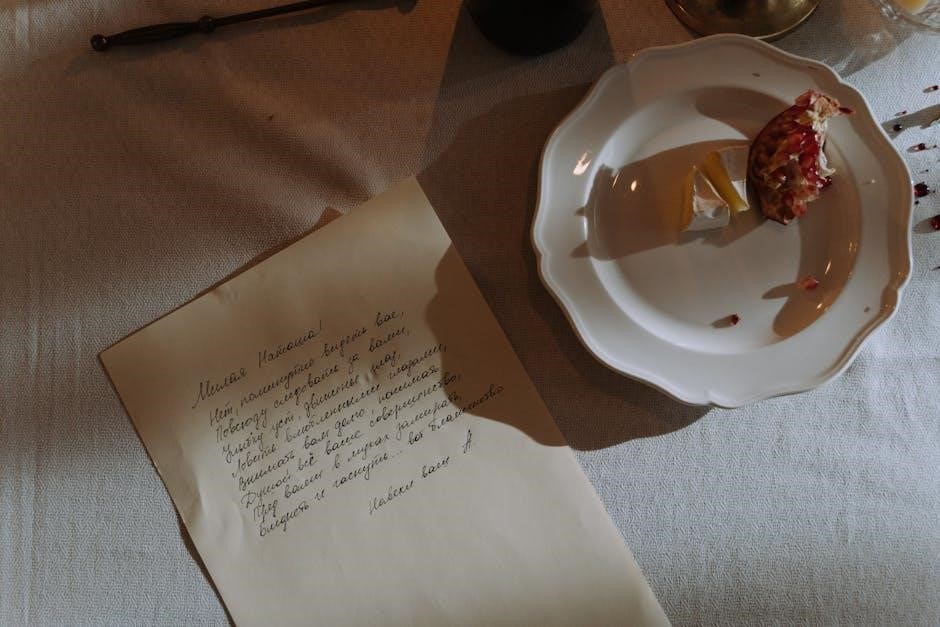 Милая Наташа!
Нет, поминутно видеть вас,
Повсюду следовать за вами,
Улыбку уст, движенье глаз,
Ловить влюбленными глазами,
Внимать вам долго, понимать
Душой всё ваше совершенство,
Пред вами в муках замирать,
Бледнеть и гаснуть... вот блаженство
Навеки ваш А